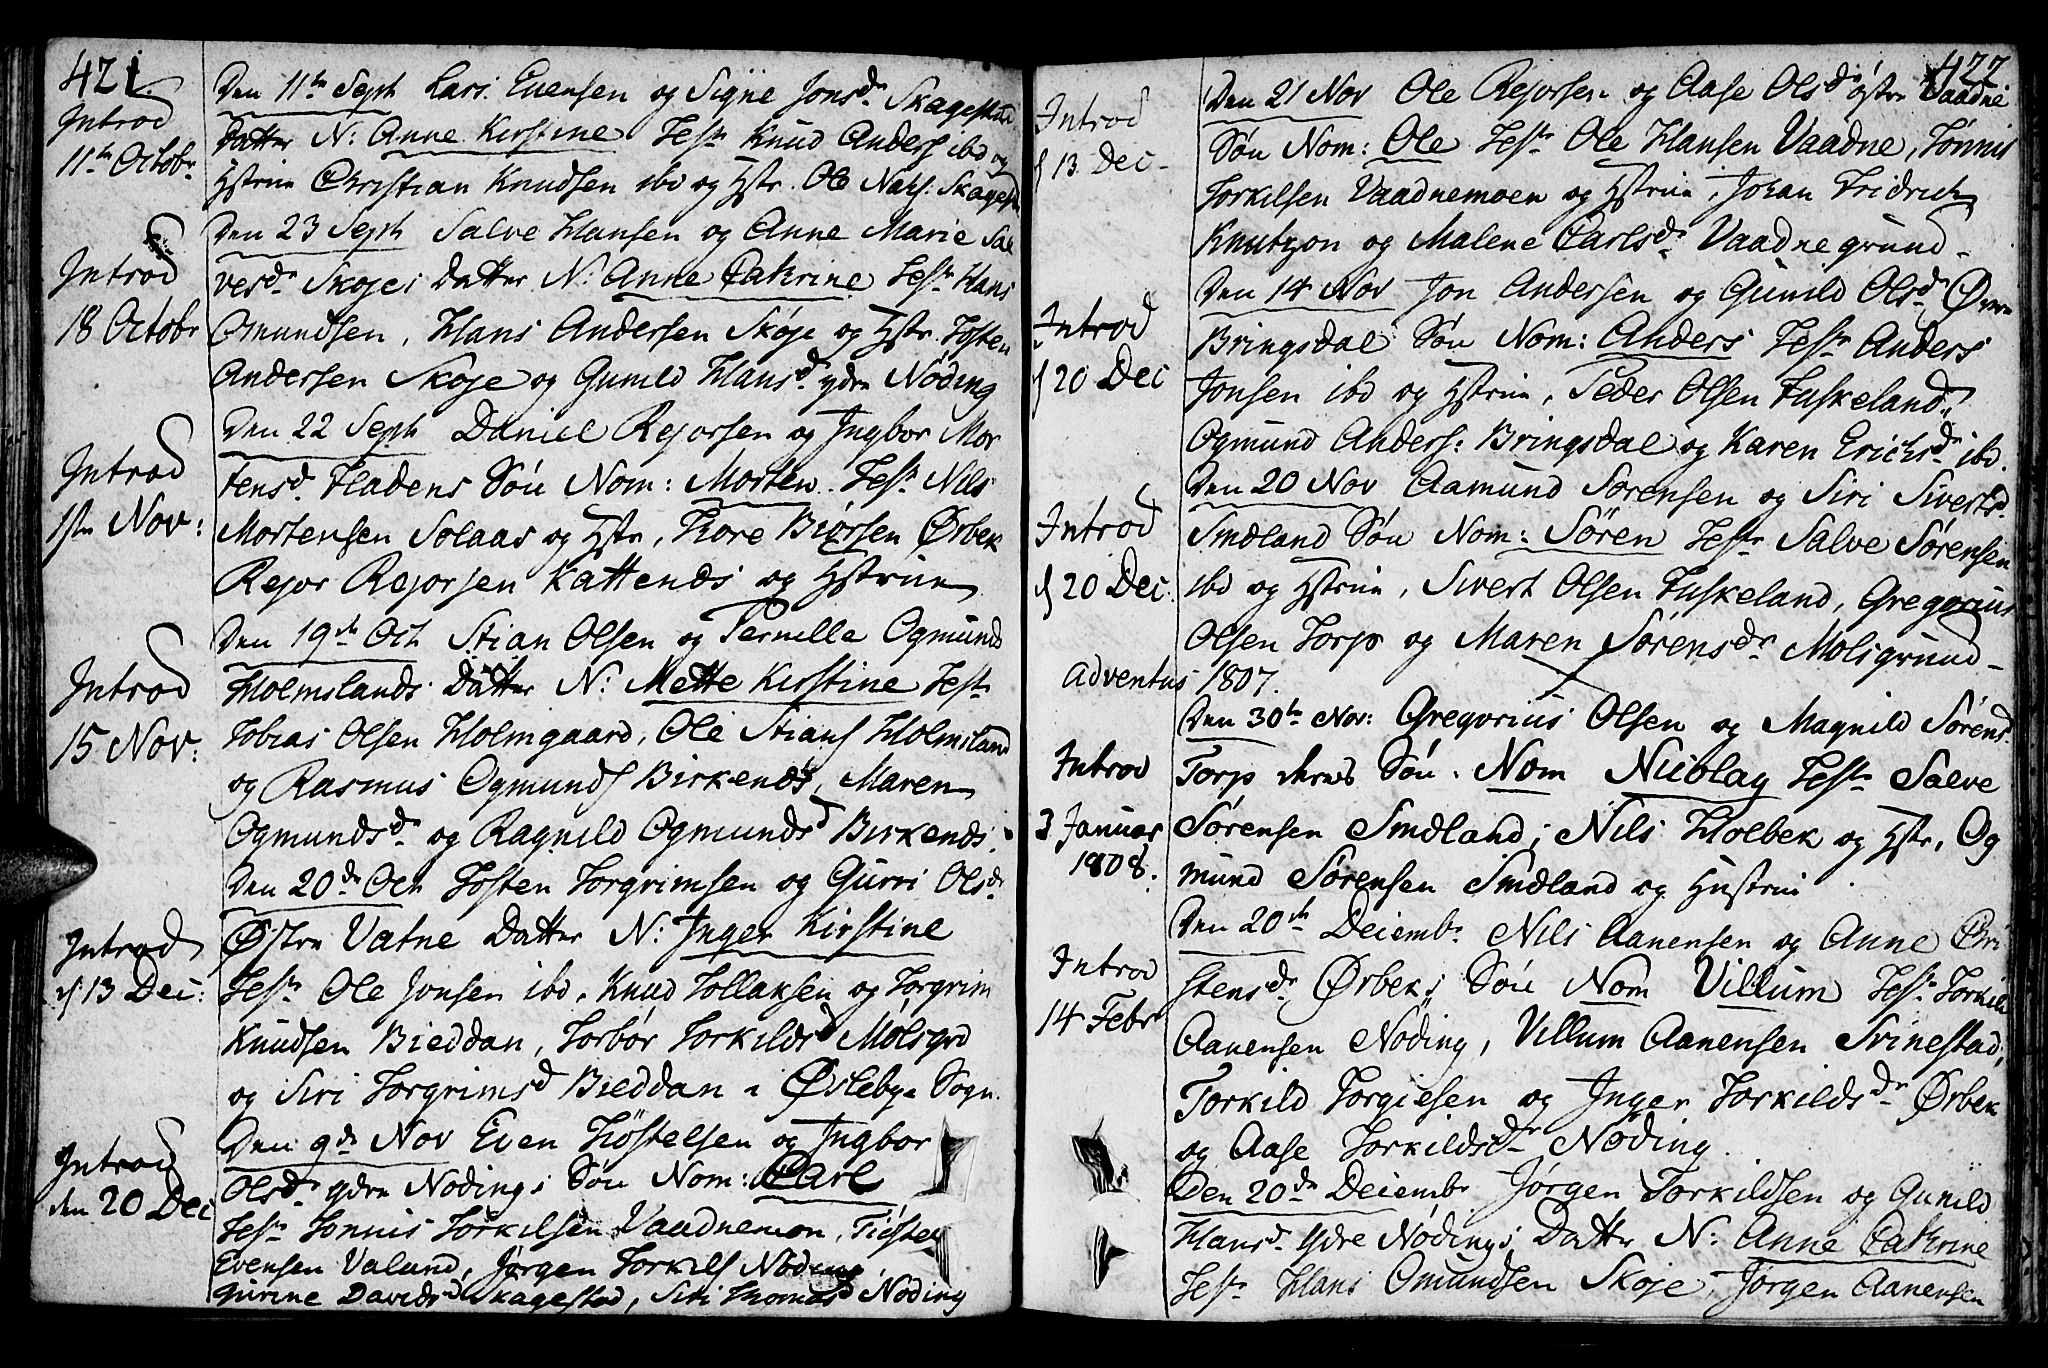 421.
Introd
11te Octobr
Den 11te Sept Lars Evensen og Signe Jonsdr Skagestad
Datter N: Anne Kirstine Test: Knud Anders ibd og
Hstrue Christian Knudsen ibd og Hstr. Ole Nals: Skagest
Introd
18 Octobr
Den 23 Sept Salve Hansen og Anne Marie Sal
vesdr Skøje; Datter N: Anne Catrine Test: Hans
Omundsen, Hans Andersen Skøje og Hstr. Tosten
Andersen Skøje og Gunild Hansd. ydre Nøding
Introd
1ste Nov:
Den 22 Sept Daniel Rejorsen og Ingbor Mor
tensd. Fladens Søn Nom: Morten. Test: Nils
Mortensen Solaas og Hstr, Thore Biørsen Ørbek
Rejor Rejorsen Kattenes og Hstrue
Introd
15 Nov:
Den 19de Oct Stian Olsen og Pernille Ogmunds
Holmslands Datter N: Mette Kirstine Test:
Tobias Olsen Holmgaard, Ole Stians Holmsland
og Rasmus Ogmunds Birkenes, Maren
Ogmundsdr og Ragnild Ogmundsd Birkenes.
Introd
d 13 Dec:
Den 20de Oct Tosten Torgrimsen og Gurri Olsdr
Østre Vatne Datter N: Inger Kirstine
Test: Ole Jonsen ibd, Knud Tollaksen og Torgrim
Knudsen Bieddan, Torbør Torkildsd Mølsgrd
og Siri Torgrimsd Bieddan i Øslebye Sogn.
Introd
den 20 Dec
Den 9de Nov Even Tøstelsen og Ingbor
Olsdr ydre Nødings Søn Nom: Carl
Test: Tønnis Torkilsen Vaadnemon, Tiøstel
Evensen Valand, Jørgen Torkils Nøding,
Gurine Davidsd Skagestad, Siri Thomasd Nøding
422
Introd
d 13 Dec
Den 21 Nov Ole Rejorsen og Aase Olsdr østre Vaadne
Søn Nom: Ole Test: Ole Hansen Vaadne, Tønnis
Torkilsen Vaadnemoen og Hstrue, Johan Fridrich
Knutzon og Malene Carlsdr Vaadnegrund
Introd
d 20 Dec
Den 14 Nov Jon Andersen og Gunild Olsdr Øvre
Bringsdal Søn Nom: Anders Test: Anders
Jonsen ibd og Hstrue, Peder Olsen Fuskeland,
Ogmund Anders: Bringsdal og Karen Erichsdr ibd.
Introd
d 20 Dec:
Den 20 Nov Aamund Sørensen og Siri Sivertsd.
Smedland Søn Nom: Søren Test: Salve Sørensen
ibd og Hstrue, Sivert Olsen Fuskeland, Gregorius
Olsen Torp og Maren Sørensdr Molsgrund
Adventus 1807.
Introd
3 Januar
1808.
Den 30te Nov: Gregorius Olsen og Magnild Sørensd.
Torp deres Søn. Nom Nicolay Test: Salve
Sørensen Smedland, Nils Holbek og Hstr, Og
mund Sørensen Smedland og Hustrue
Introd
14 Febr
Den 20de Decembr Nils Aanensen og Anne Cri
stensdr Ørbeks Søn Nom Villum Test: Torkild
Aanensen Nøding, Villum Aanensen Svinestad,
Torkild Torgielsen og Inger Torkildsdr Ørbek
og Aase Torkildsdr Nøding.
Den 20de Decembr Jørgen Torkildsen og Gunild
Hansd. ydre Nødings Datter N: Anne Catrine
Test: Hans Omundsen Skøje, Jørgen Aanensen